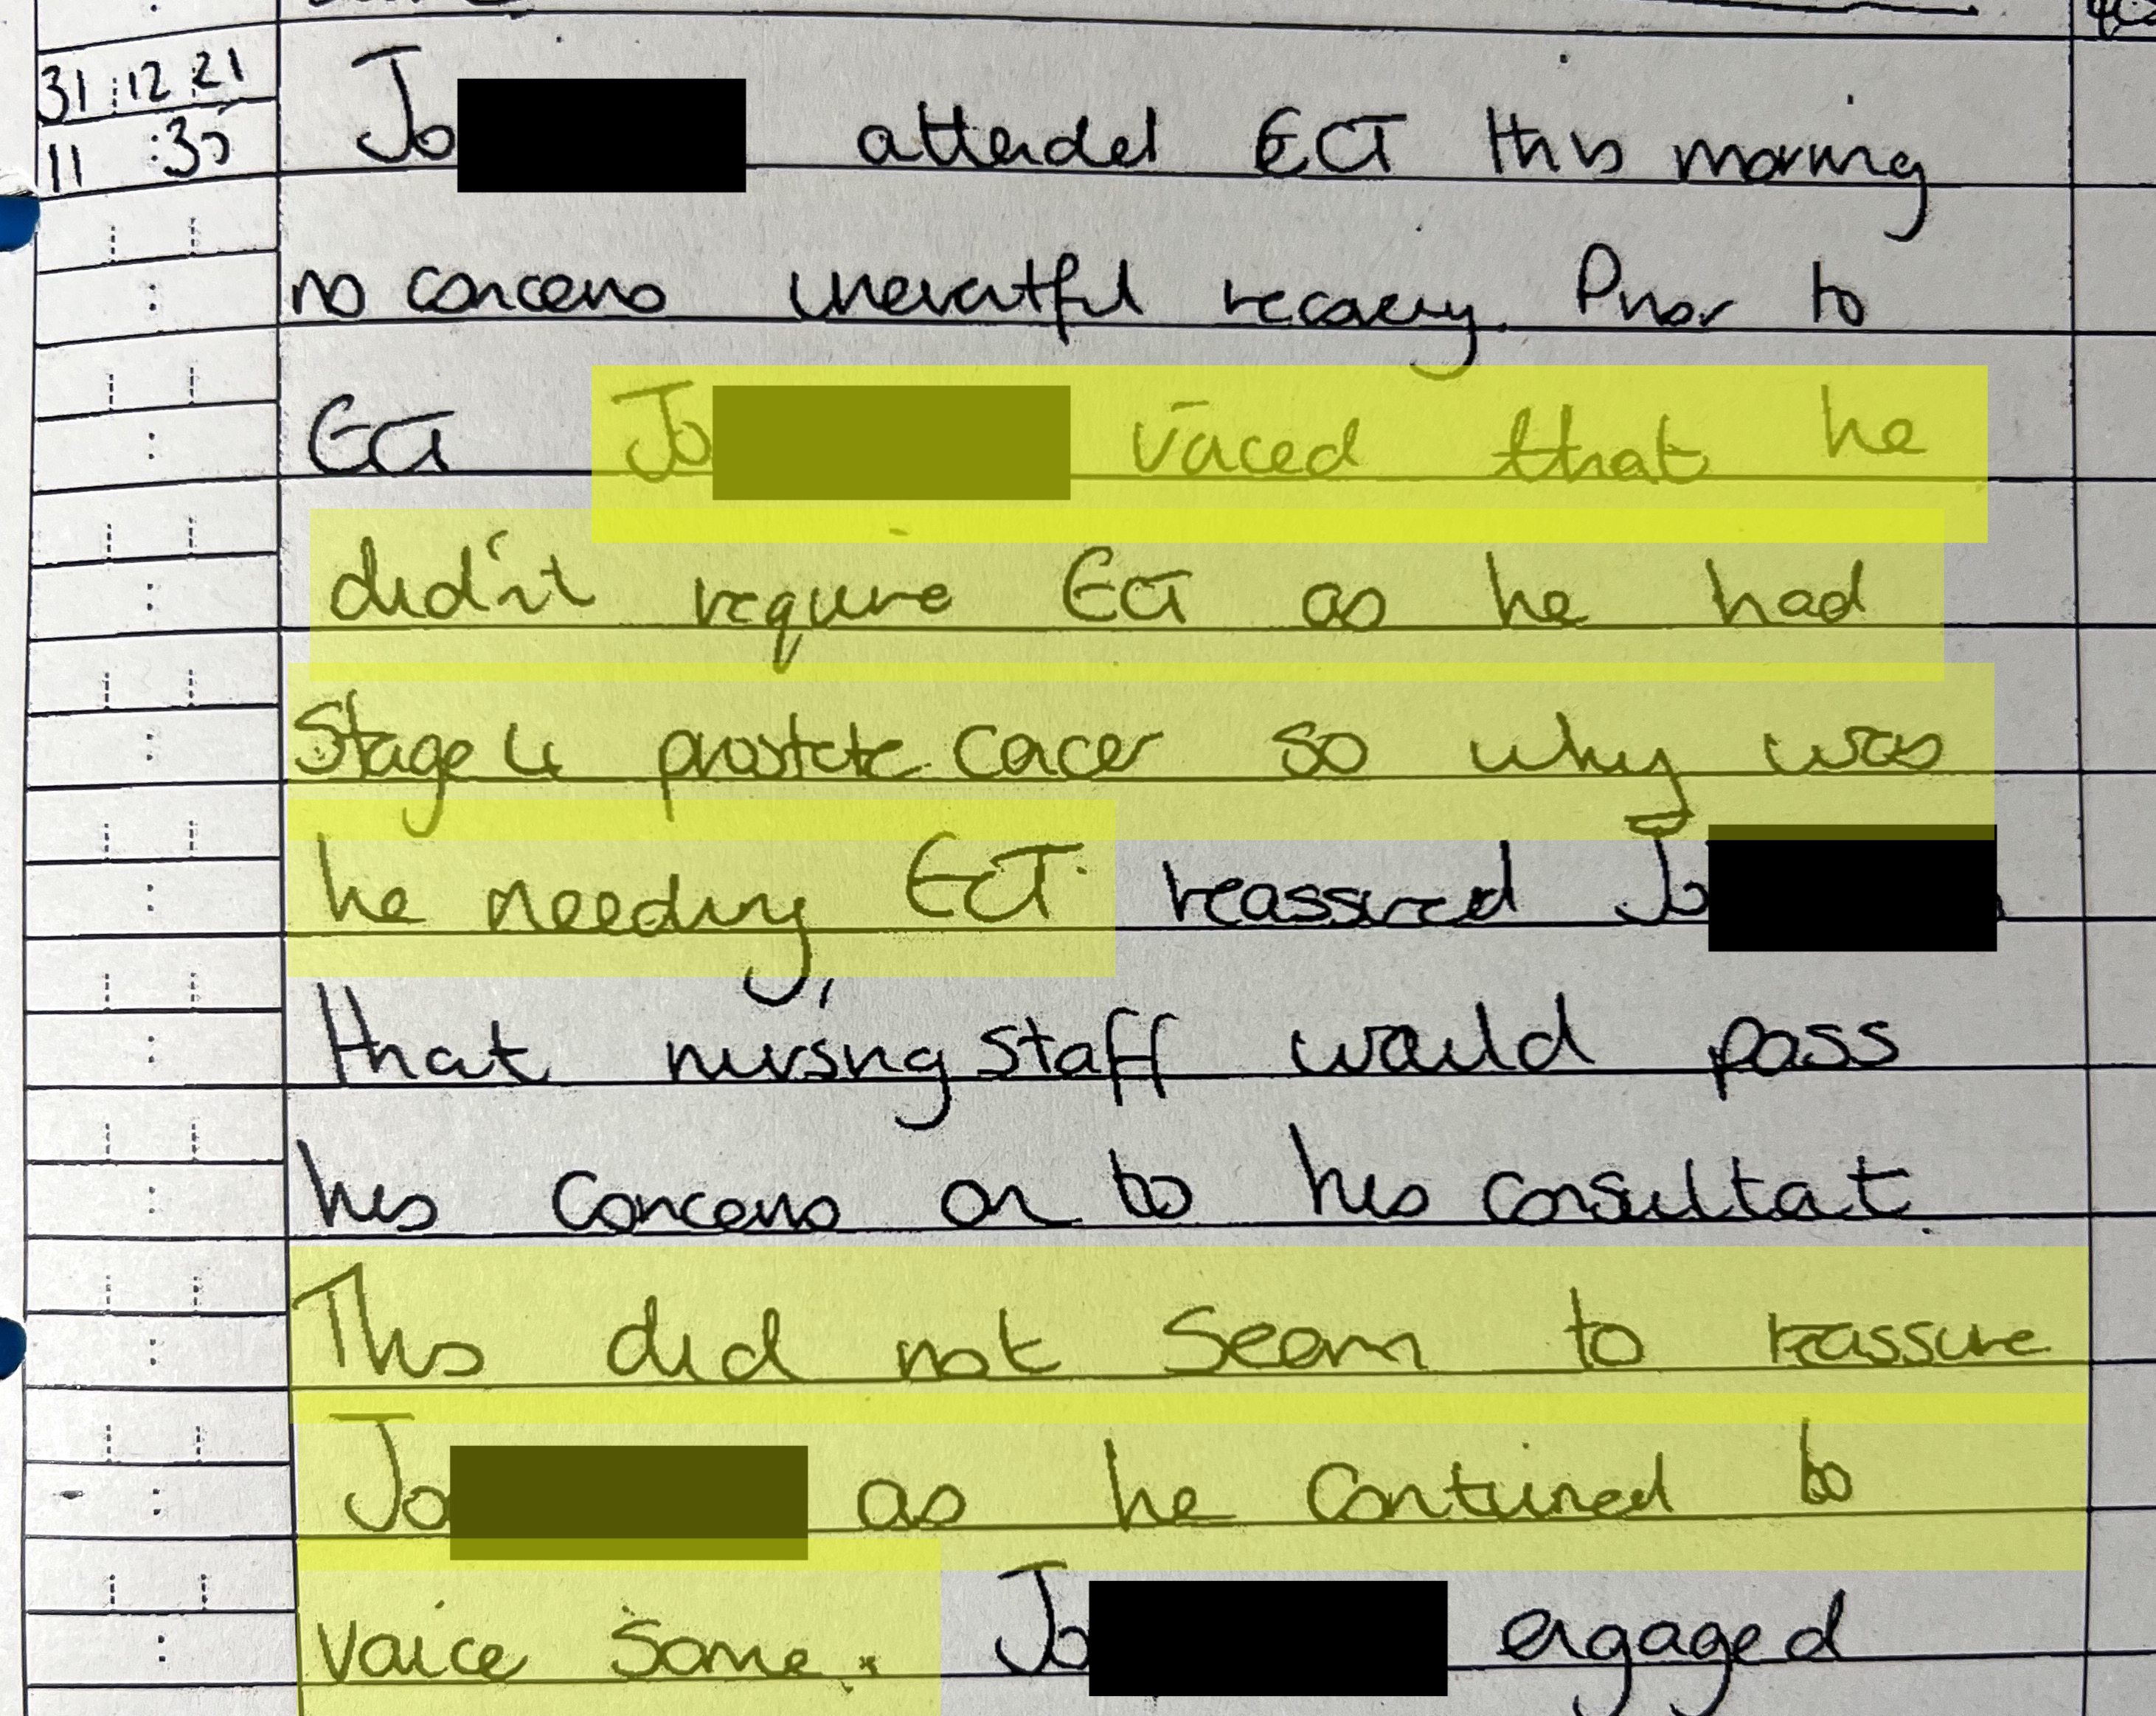 31 12 21
11 :35
Jo attended ECT this morning
no concerns uneventful recovery. Prior to
ECT Jo voiced that he
didn't require ECT as he had
Stage 4 prostate cancer so why was
he needing ECT. reassured Jo
that nursing staff would pass
his concerns on to his consultant.
This did not seem to reassure
Jo as he continued to
voice same. Jo engaged